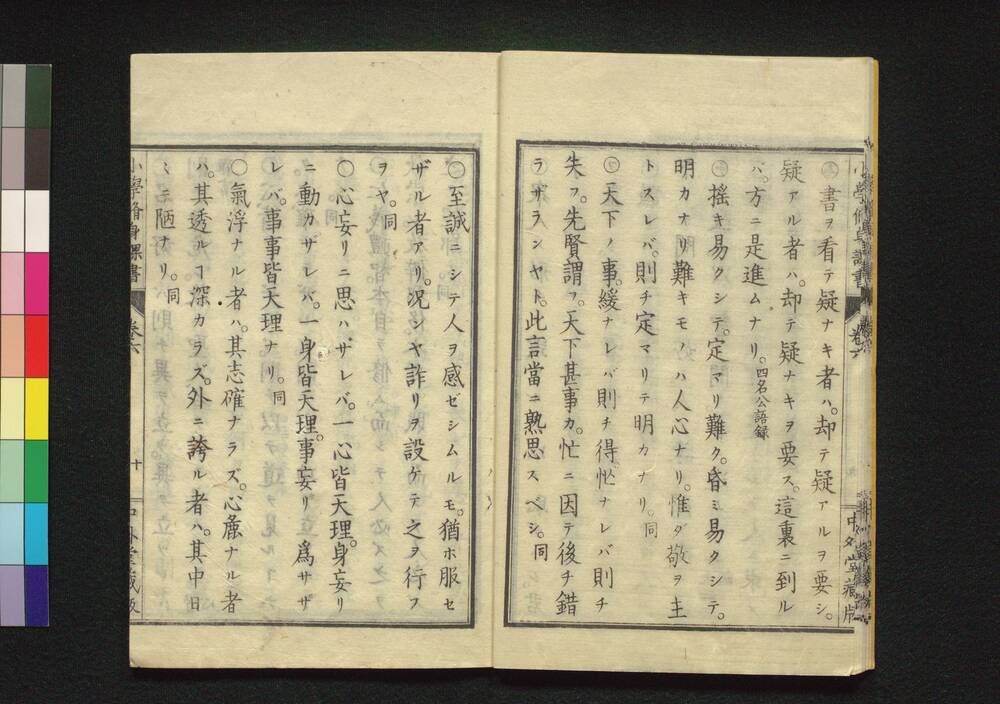 書ヲ看テ疑ナキ者ハ。却テ疑アルヲ要シ。
疑アル者ハ。却テ疑ナキヲ要ス。這裏ニ到ル
ハ。方ニ是進ムナリ。四名公語録
搖キ易クシテ。定マリ難ク。昏ミ易クシテ。
明カナリ難キモノハ人心ナリ。惟ダ敬ヲ主
トスレバ。則チ定マリテ明カナリ。同
天下ノ事。緩ナレバ則チ得。忙ナレバ則チ
失フ。先賢謂フ。天下甚事カ。忙ニ因テ後チ錯
ラザランヤト。此言當ニ熟思スベシ。同
〇至誠ニシテ人ヲ感ゼシムルモ。猶ホ服セ
ザル者アリ。況ンヤ詐リヲ設ケテ之ヲ行フ
ヲヤ。同
〇心妄リニ思ハザレバ。一心皆天理。身妄リ
ニ動カザレバ。一身皆天理。事妄リニ爲サザ
レバ。事事皆天理ナリ。同
〇氣浮ナル者ハ。其志確ナラズ。心麁ナル者
ハ。其透ルヿ深カラズ。外ニ誇ル者ハ。其中日
ミニ陋ナリ。同
小學修身課書 卷六 十 中外堂藏版